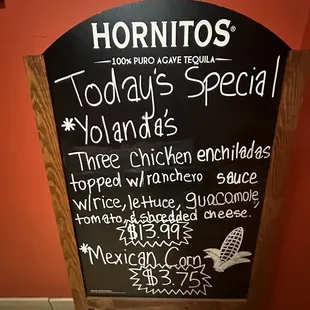 HORNITOS®
100% PURO AGAVE TEQUILA
Today's Special
*Yolanda's
Three chicken enchiladas
topped w/ranchero sauce
w/rice, lettuce, guacamole,
tomato, & shredded cheese.
$13.99
*Mexican Corn
$3.75